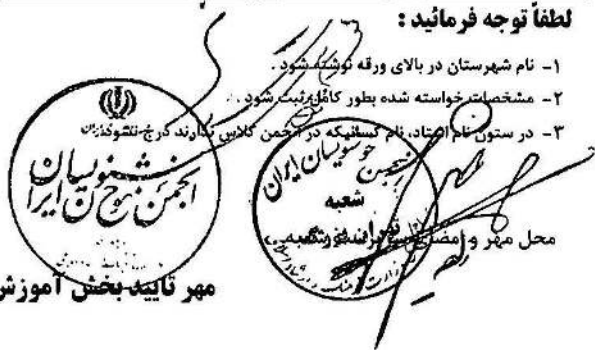 لطفاً توجه فرمائید :
۱- نام شهرستان در بالای ورقه نوشته شود .
۲- مشخصات خواسته شده بطور کامل ثبت شود .
۳- در ستون نام استاد، نام کسانیکه در انجمن کلاس ندارند درج نشود.
انجمن خوشنویسان ایران
انجمن خوشنویسان ایران
شعبه
تهران
محل مهر و امضا
مهر تائید بخش آموزش